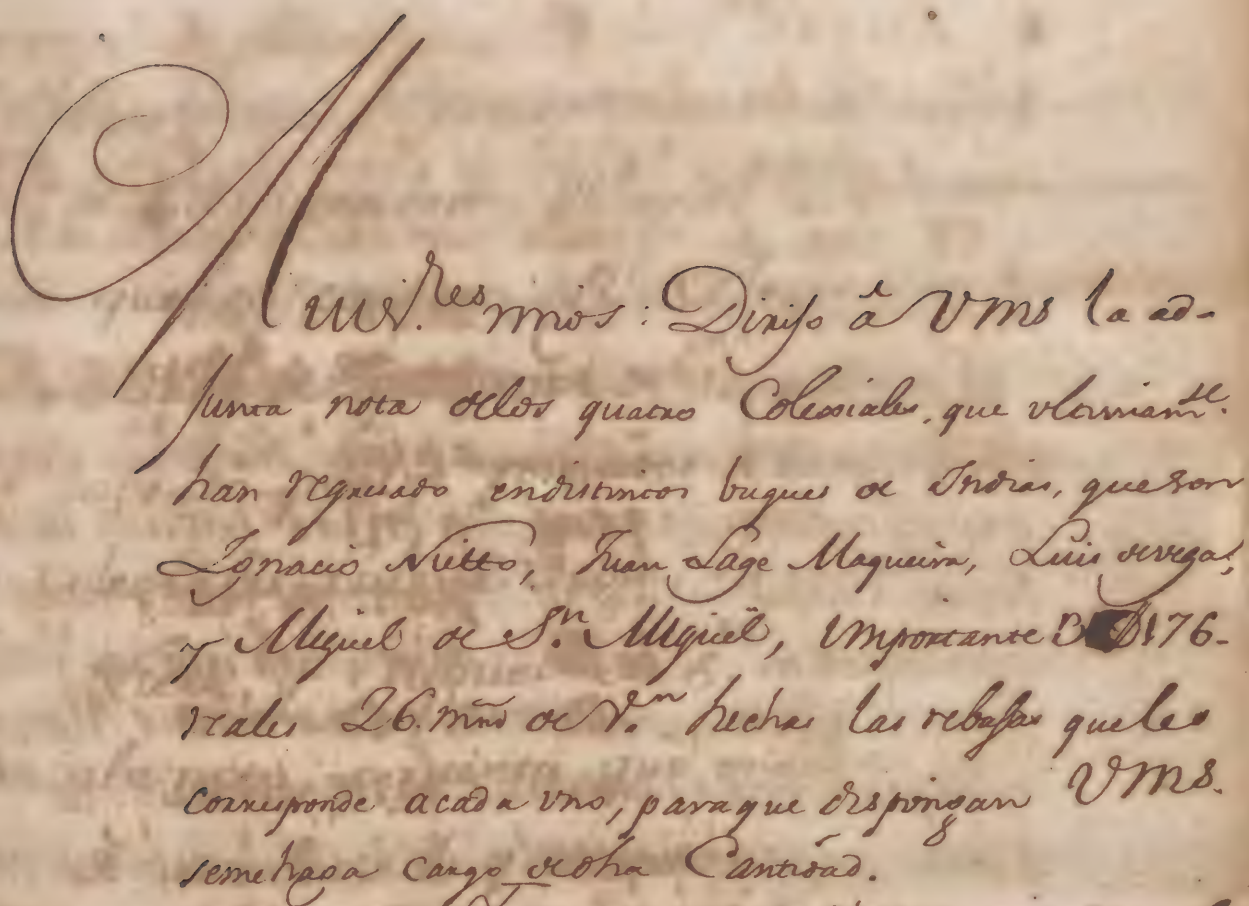 Mui S.res mios: Dirijo â VMS la ad-
junta nota delos quatro Colegiales, que ultimam.te
han regresado endistintos buques de Indias, queson
Ignacio Nietto, Juan Lage Maqueira, Luis devega,
y Miguel de S.n Miguel, importante 176-
reales 26. mrs de V.n hechas las rebajas queles
corresponde acada uno, paraque dispongan VMS.
semehaga cargo dedha Cantidad.